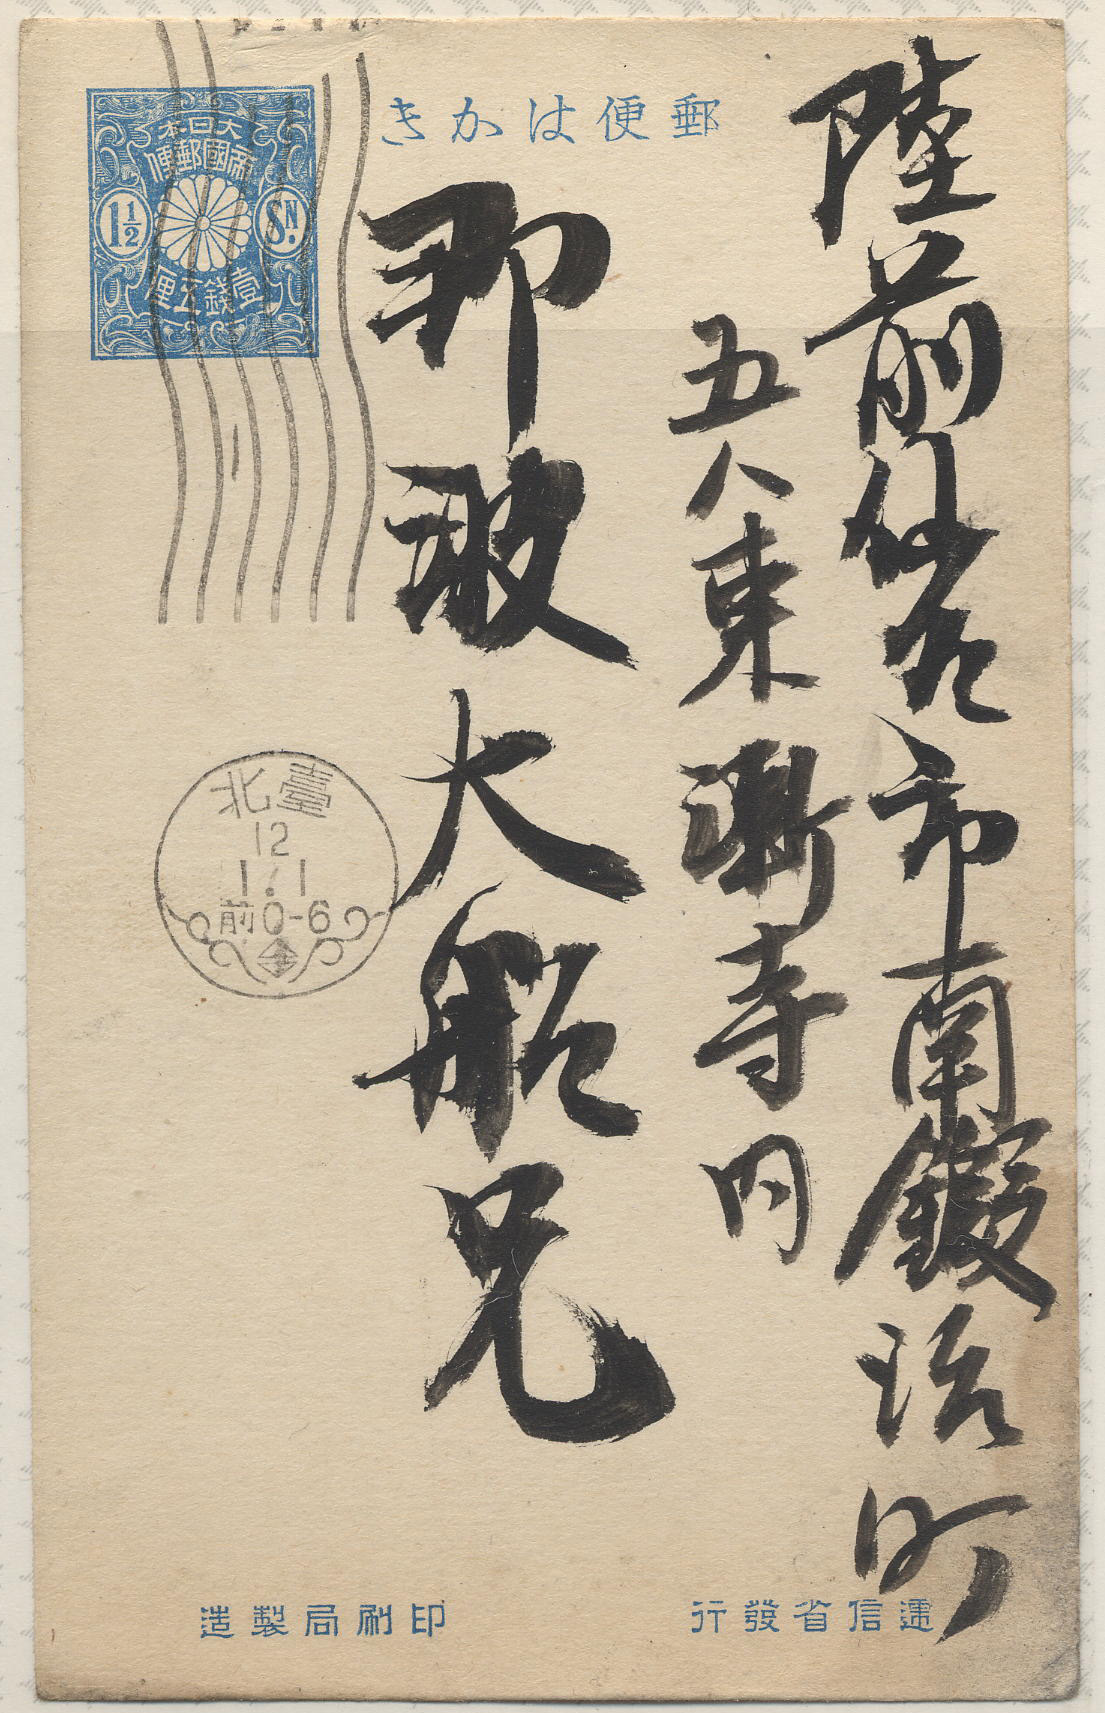 郵便はかき
大日本
帝國郵便
1½ SN.
壹錢五厘
陸前仙台市南鍛冶町
五八東漸寺内
那波大船兄
臺北
12
1.1
前0-6
遞信省發行
印刷局製造